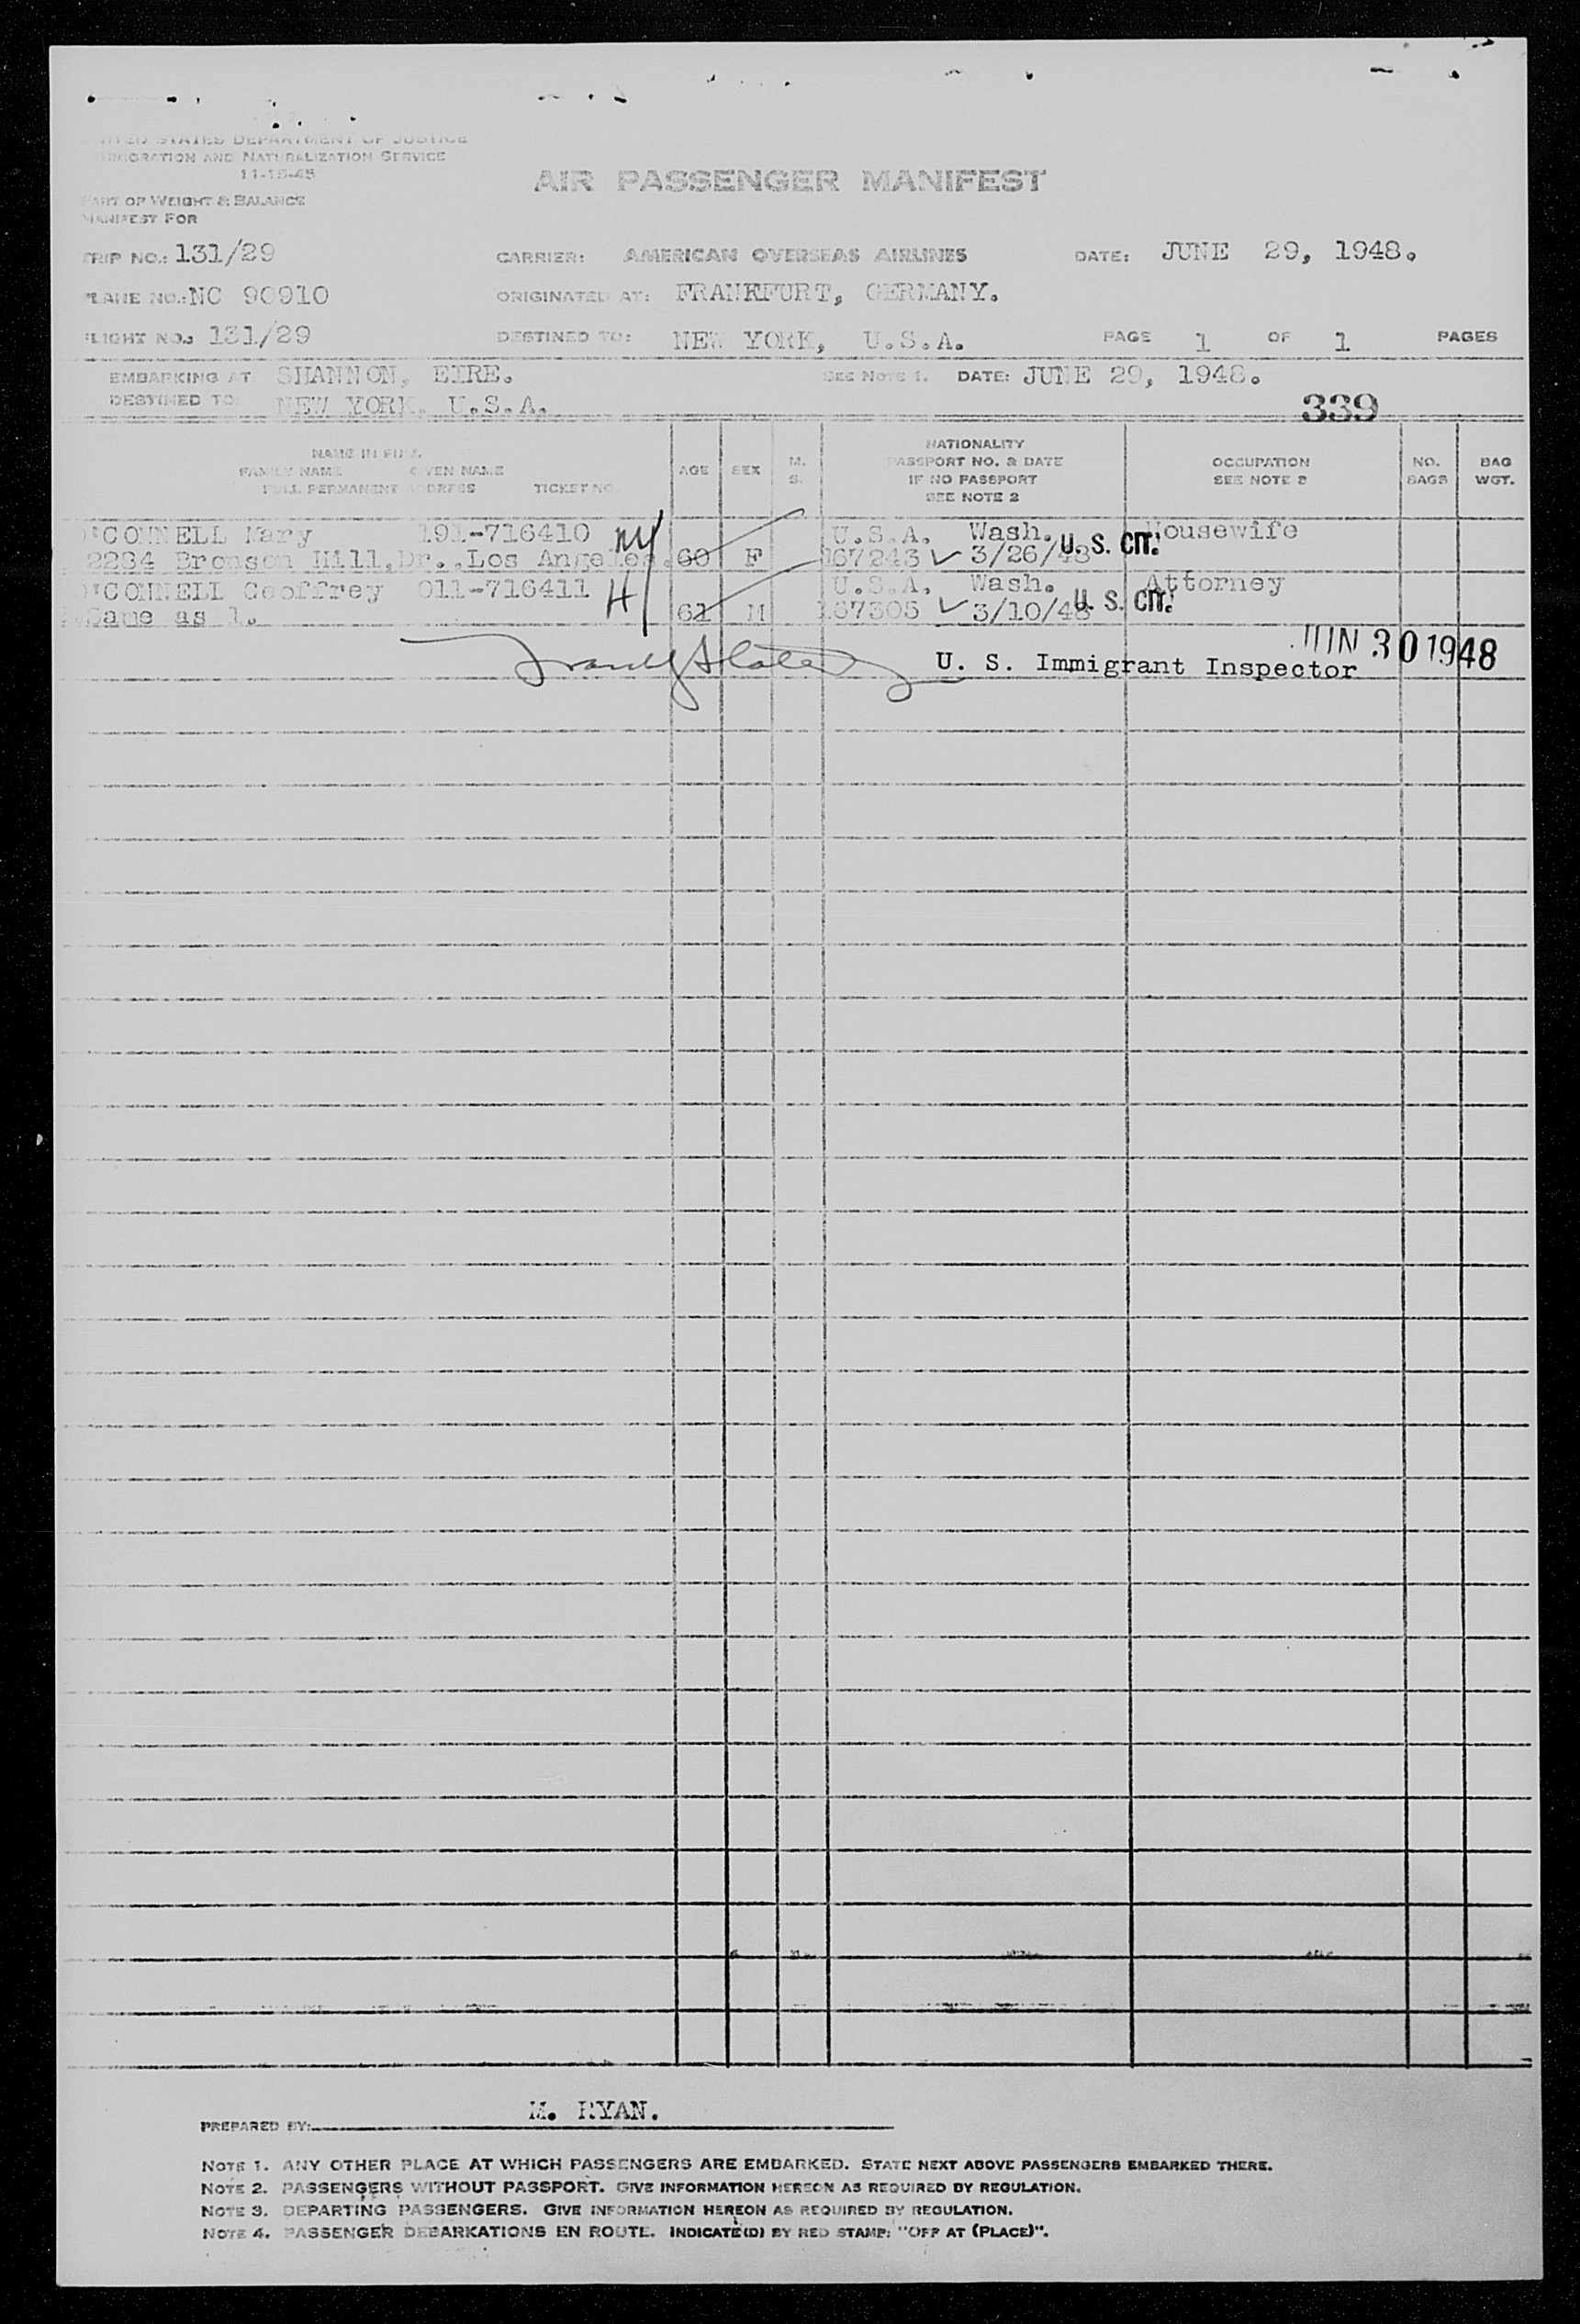 UNITED STATES DEPARTMENT OF JUSTICE
IMMIGRATION AND NATURALIZATION SERVICE
11-15-45
AIR PASSENGER MANIFEST
PART OF WEIGHT & BALANCE
MANIFEST FOR
TRIP NO.: 131/29 CARRIER: AMERICAN OVERSEAS AIRLINES DATE: JUNE 29, 1948.
PLANE NO.: NC 90910 ORIGINATED AT: FRANKFURT, GERMANY.
FLIGHT NO.: 131/29 DESTINED TO: NEW YORK, U.S.A. PAGE 1 OF 1 PAGES
EMBARKING AT SHANNON, EIRE. SEE NOTE 1. DATE: JUNE 29, 1948.
DESTINED TO: NEW YORK, U.S.A. 339
NAME IN FULL NATIONALITY
FAMILY NAME GIVEN NAME AGE SEX M. S. PASSPORT NO. & DATE OCCUPATION NO. BAG
FULL PERMANENT ADDRESS TICKET NO. IF NO PASSPORT SEE NOTE 2 BAGS WGT.
SEE NOTE 2
O'CONNELL Mary 191-716410 U.S.A. Wash. Housewife
2234 Bronson Hill, Dr., Los Angeles. 60 F 167243 ✓ 3/26/48 U. S. CIT.
O'CONNELL Geoffrey 011-716411 U.S.A. Wash. Attorney
Same as 1. 61 M 167305 ✓ 3/10/48 U. S. CIT.
U. S. Immigrant Inspector JUN 30 1948
PREPARED BY: M. RYAN.
NOTE 1. ANY OTHER PLACE AT WHICH PASSENGERS ARE EMBARKED. STATE NEXT ABOVE PASSENGERS EMBARKED THERE.
NOTE 2. PASSENGERS WITHOUT PASSPORT. GIVE INFORMATION HEREON AS REQUIRED BY REGULATION.
NOTE 3. DEPARTING PASSENGERS. GIVE INFORMATION HEREON AS REQUIRED BY REGULATION.
NOTE 4. PASSENGER DEBARKATIONS EN ROUTE. INDICATE(D) BY RED STAMP: "OFF AT (PLACE)".